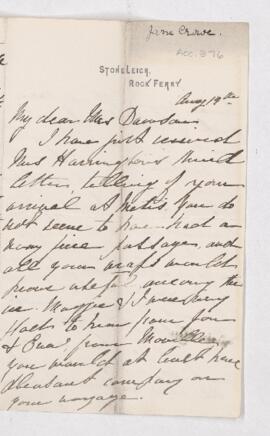 Jane Crowe.
ACC. 376
STONELEIGH,
ROCK FERRY
Aug 19th
My dear Mrs Dawson
I have just received
Mrs Harrington's kind
letter, telling of your
arrival at Metis. You do
not seem to have had a
very nice passage, and
all your wraps would
prove useful among the
ice. Maggie & I were very
to hear from you
& Eva from
you would at least have
pleasant company on
your voyage.